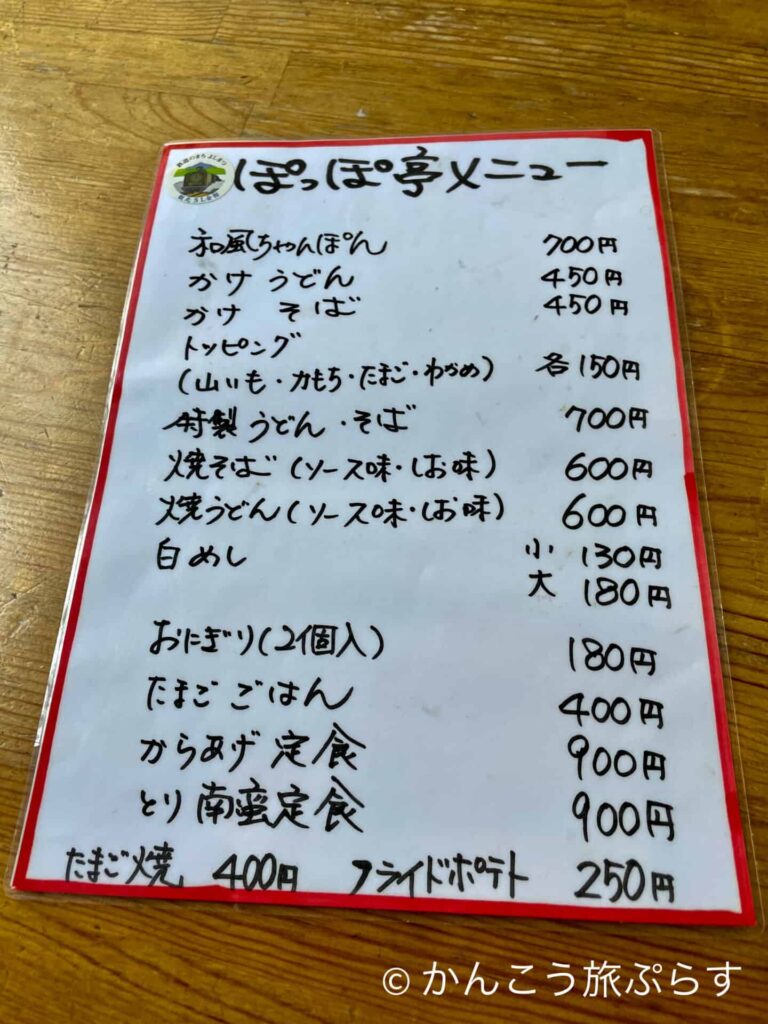 鉄道のまち よしまつ
ぽっぽ亭メニュー
和風ちゃんぽん 700円
かけ うどん 450円
かけ そば 450円
トッピング
(山いも・力もち・たまご・わかめ) 各150円
特製うどん・そば 700円
焼そば(ソース味・しお味) 600円
焼うどん(ソース味・しお味) 600円
白めし 小 130円
大 180円
おにぎり(2個入) 180円
たまごごはん 400円
からあげ定食 900円
とり南蛮定食 900円
たまご焼 400円 フライドポテト 250円
© かんこう旅ぷらす